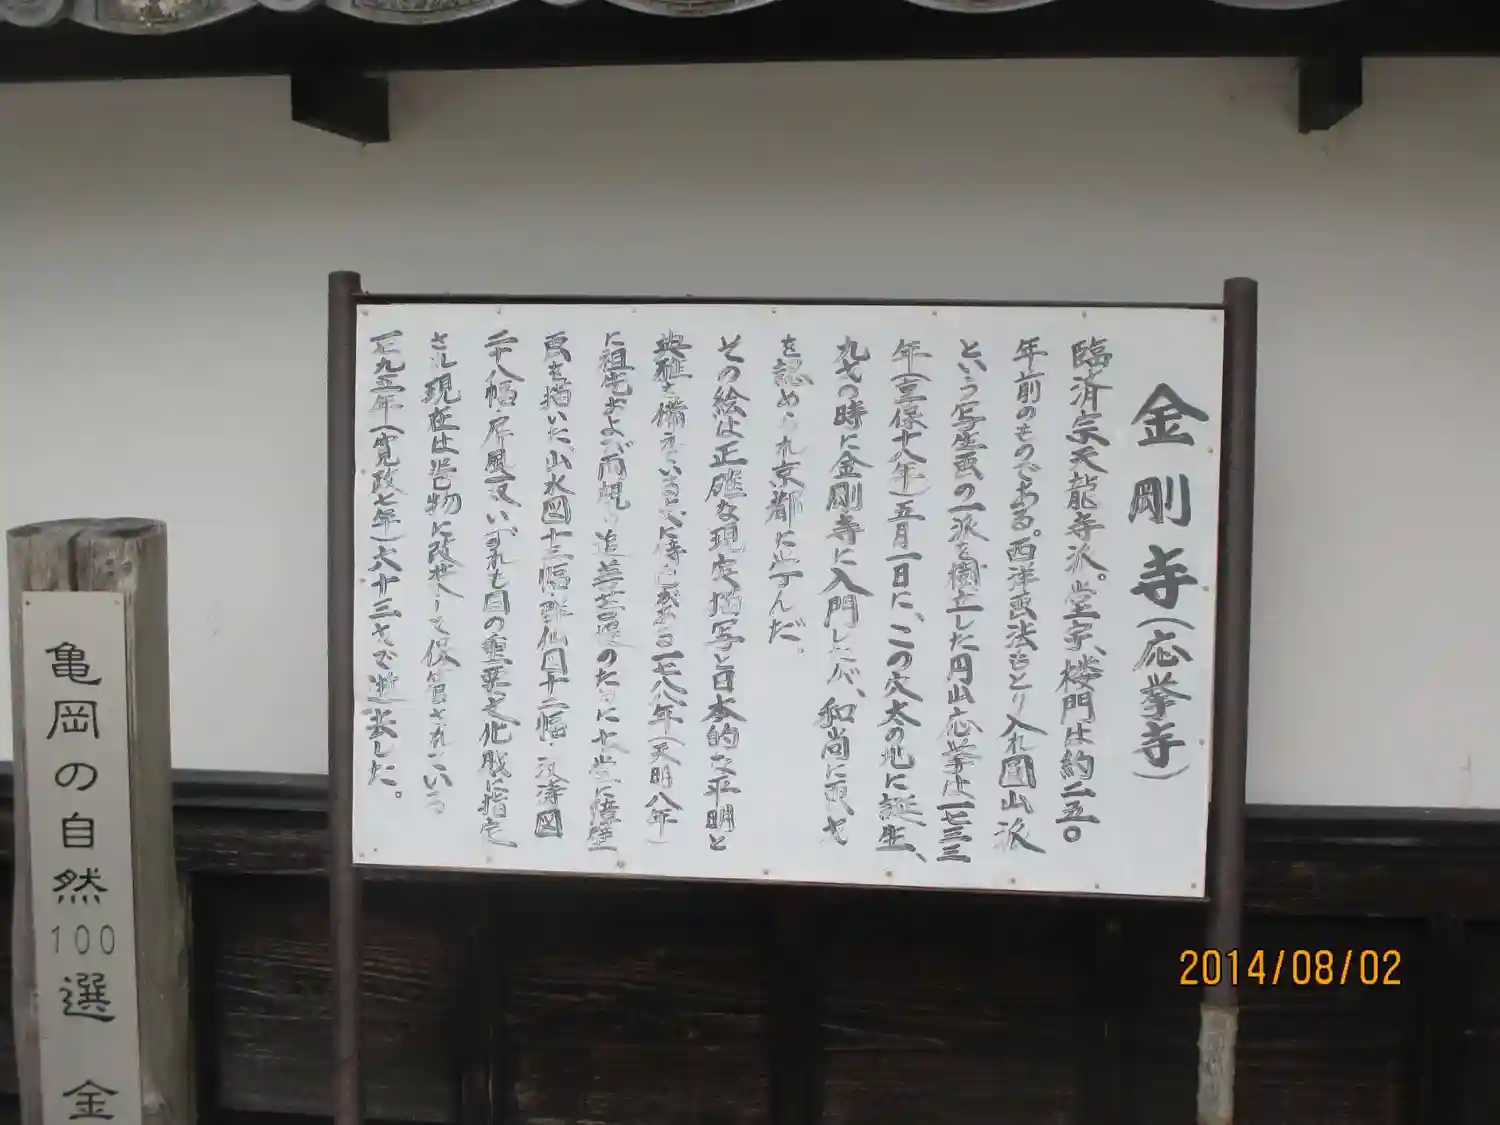 金剛寺(応挙寺)
臨済宗天龍寺派。堂宇、楼門は約二五〇
年前のものである。西洋画法もとり入れ圓山派
という写生画の一派を樹立した円山応挙は一七三三
年(享保十八年)五月一日に、この穴太の地に誕生、
九才の時に金剛寺に入門したが、和尚に画才
を認められ京都に学んだ。
その絵は正確な現実描写と日本的な平明と
典雅を備えている 特色がある一七八八年(天明八年)
に祖先および両親 追善菩提のために本堂に障壁
画を描いた。山水図十三幅・群仙図十二幅・波涛図
二十八幅・屏風一双いずれも国の重要文化財に指定
され現在は巻物に改 して保管されている
一七九五年(寛政七年)六十三才で逝去した。
亀岡の自然100選 金
2014/08/02